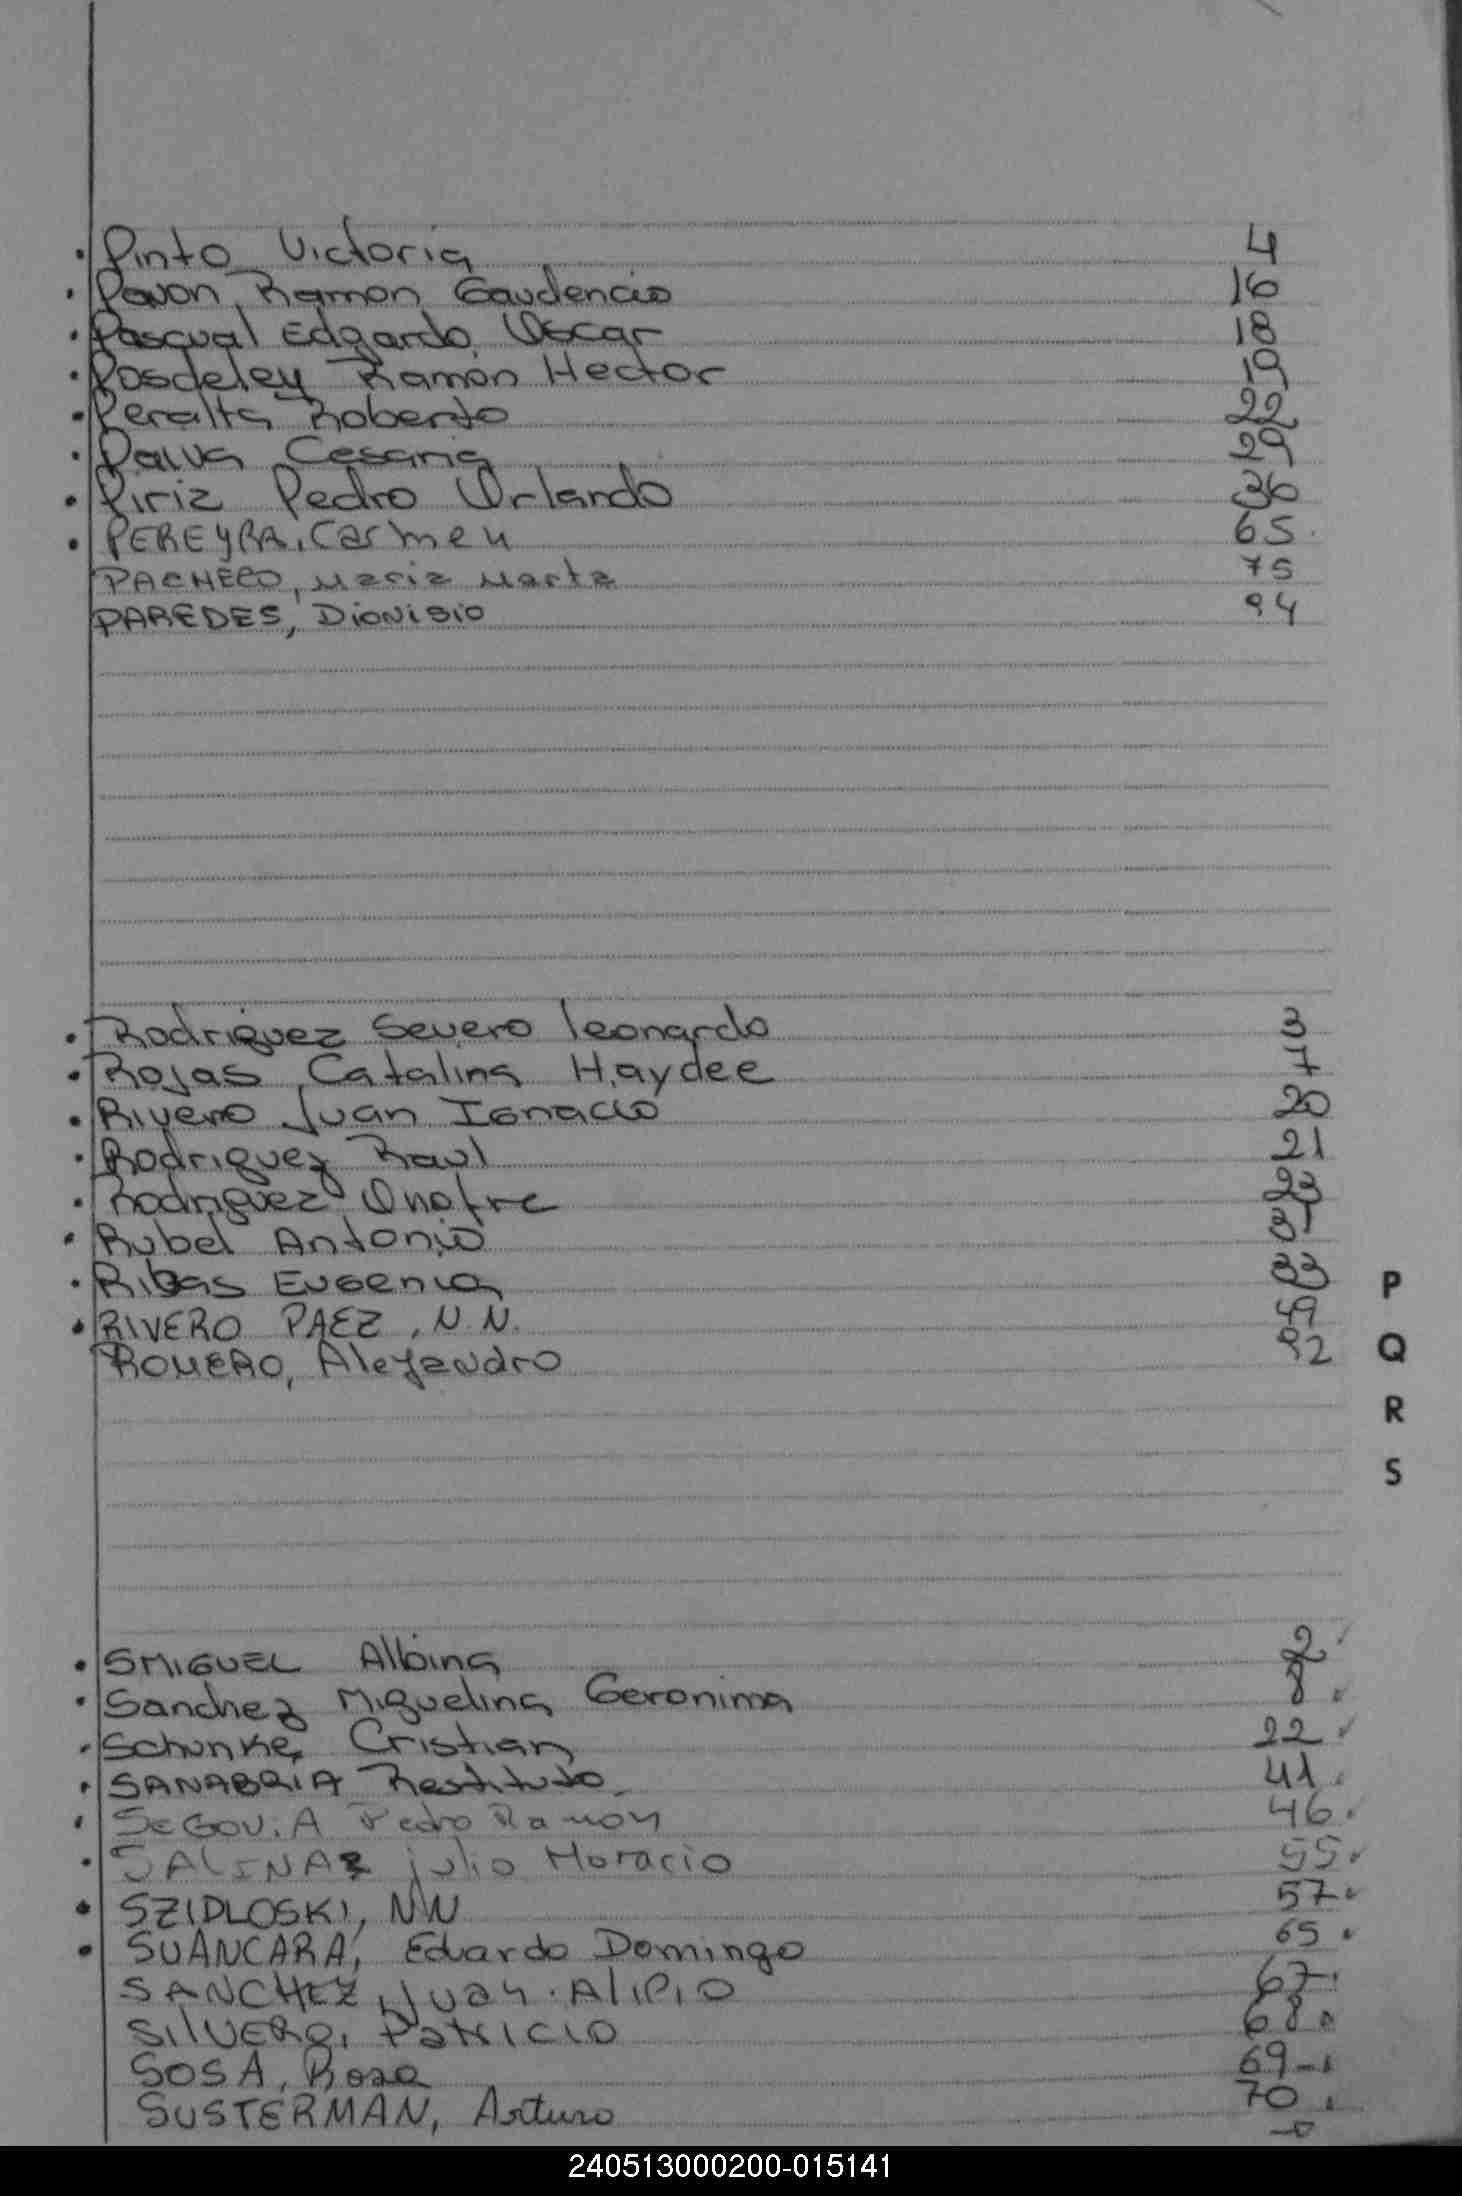 Pinto Victoria 4
Pavon, Ramon Gaudencio 16
Pascual Edgardo Oscar 18
Posdeley Ramon Hector 19
Peralta Roberto 22
Paiva Cesaria 29
Piriz Pedro Orlando 36
PEREYRA, Carmen 65
PACHECO, Maria Marta 75
PAREDES, Dionisio 94
Rodriguez Severo Leonardo 3
Rojas, Catalina Haydee 7
Rivero Juan Ignacio 20
Rodriguez Raul 21
Rodriguez Onofre 23
Rubel Antonio 31
Ribas Eugenia 33
RIVERO PAEZ, N.N. 49
ROMERO, Alejandro 92
P
Q
R
S
SMIGUEL Albina 2
Sanchez Miguelina Geronima 8
Schunke, Cristian 22
SANABRIA Restituto 41
SEGOViA Pedro Ramón 46
SALINAS julio Horacio 55
SZIDLOSKI, NN 57
SUANCARA, Eduardo Domingo 65
SANCHEZ, Juan Alipio 67
SILVERO, Patricio 68
SOSA, Rosa 69
SUSTERMAN, Arturo 70
240513000200-015141